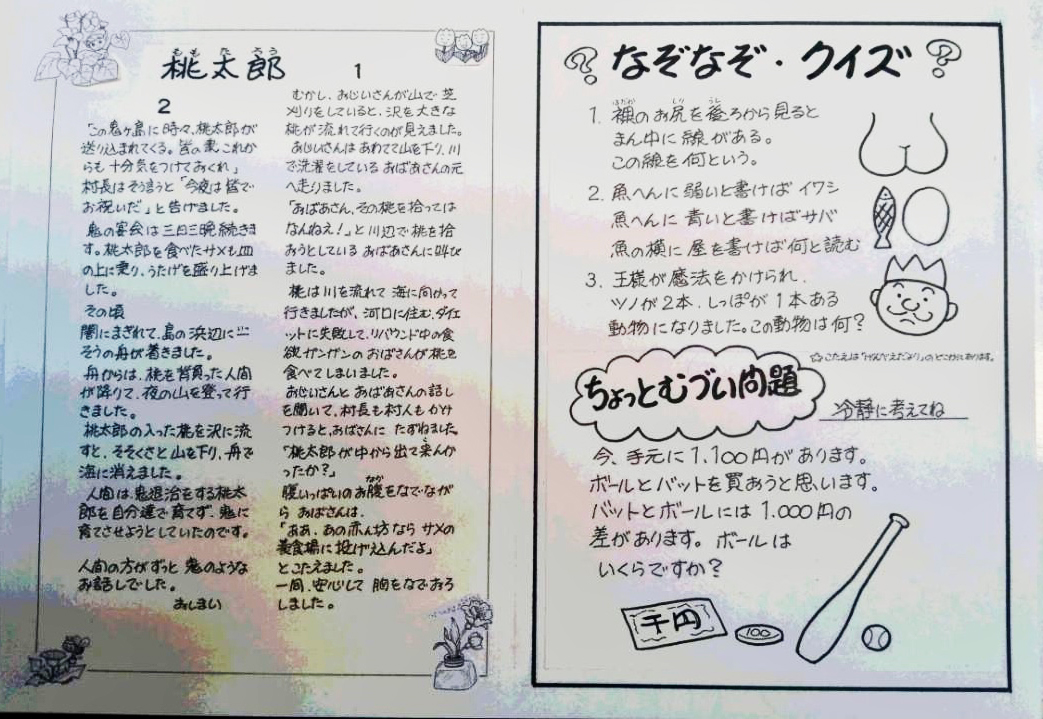 桃太郎
1
むかし、おじいさんが山で芝
刈りをしていると、沢を大きな
桃が流れて行くのが見えました。
おじいさんはあわてて山を下り、川
で洗濯をしているおばあさんの元
へ走りました。
「おばあさん、その桃を拾っては
なんねえ!」と川辺で桃を拾
おうとしているおばあさんに叫び
ました。
桃は川を流れて海に向かって
行きましたが、河口に住む、ダイエ
ットに失敗して、リバウンド中の食
欲ガンガンのおばさんが桃を
食べてしまいました。
おじいさんとおばあさんの話し
を聞いて、村長も村人もかけ
つけると、おばさんにたずねました。
「桃太郎が中から出て来んか
ったか?」
腹いっぱいのお腹をなでなが
らおばさんは、
「ああ、あの赤ん坊ならサメの
養食場に投げ込んだよ」
とこたえました。
一同、安心して胸をなでおろ
しました。
2
「この鬼ヶ島に時々、桃太郎が
送り込まれてくる。皆の衆、これか
らも十分気をつけておくれ」
村長はそう言うと「今夜は皆で
お祝いだ」と告げました。
鬼の宴会は三日三晩続きま
す。桃太郎を食べたサメも皿
の上に乗り、うたげを盛り上げま
した。
その頃
闇にまぎれて、島の浜辺に一
そうの舟が着きました。
舟からは、桃を背負った人間
が降りて、夜の山を登って行
きました。
桃太郎の入った桃を沢に流
すと、そそくさと山を下り、舟で
海に消えました。
人間は、鬼退治をする桃太
郎を自分達で育てず、鬼に
育てさせようとしていたのです。
人間の方がずっと鬼のような
お話しでした。
おしまい
なぞなぞ・クイズ
1. 裸のお尻を後ろから見ると
まん中に線がある。
この線を何という。
2. 魚へんに弱いと書けばイワシ
魚へんに青いと書けばサバ
魚の横に屋を書けば何と読む
3. 王様が魔法をかけられ、
ツノが2本、しっぽが1本ある
動物になりました。この動物は何?
ちょっとむづい問題
冷静に考えてね
今、手元に1.100円があります。
ボールとバットを買おうと思います。
バットとボールには1.000円の
差があります。ボールは
いくらですか?
千円
100